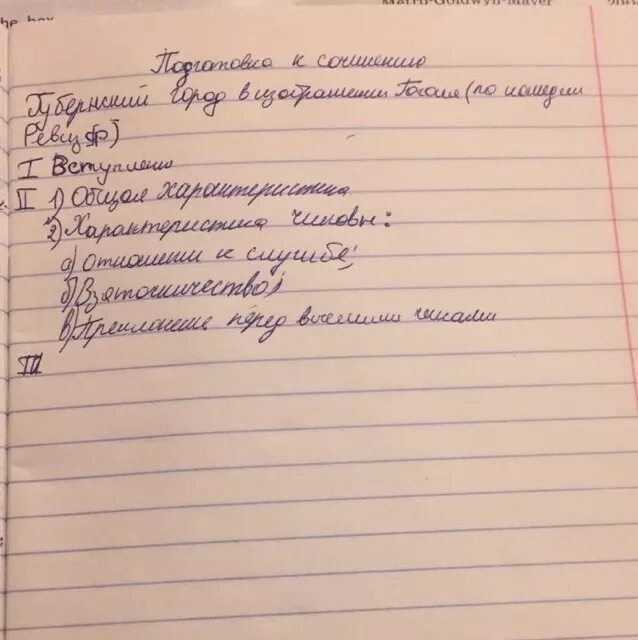 the box
Metro-Goldwyn-Mayer
Подготовка к сочинению
Губернский город в изображении Гоголя (по комедии
Ревизор)
I Вступлени
II 1) Общая характеристика
2) Характеристика чиновн:
а) отношени к службе;
б) Взяточничество;
в) Преклонение перед высшими чинами
III